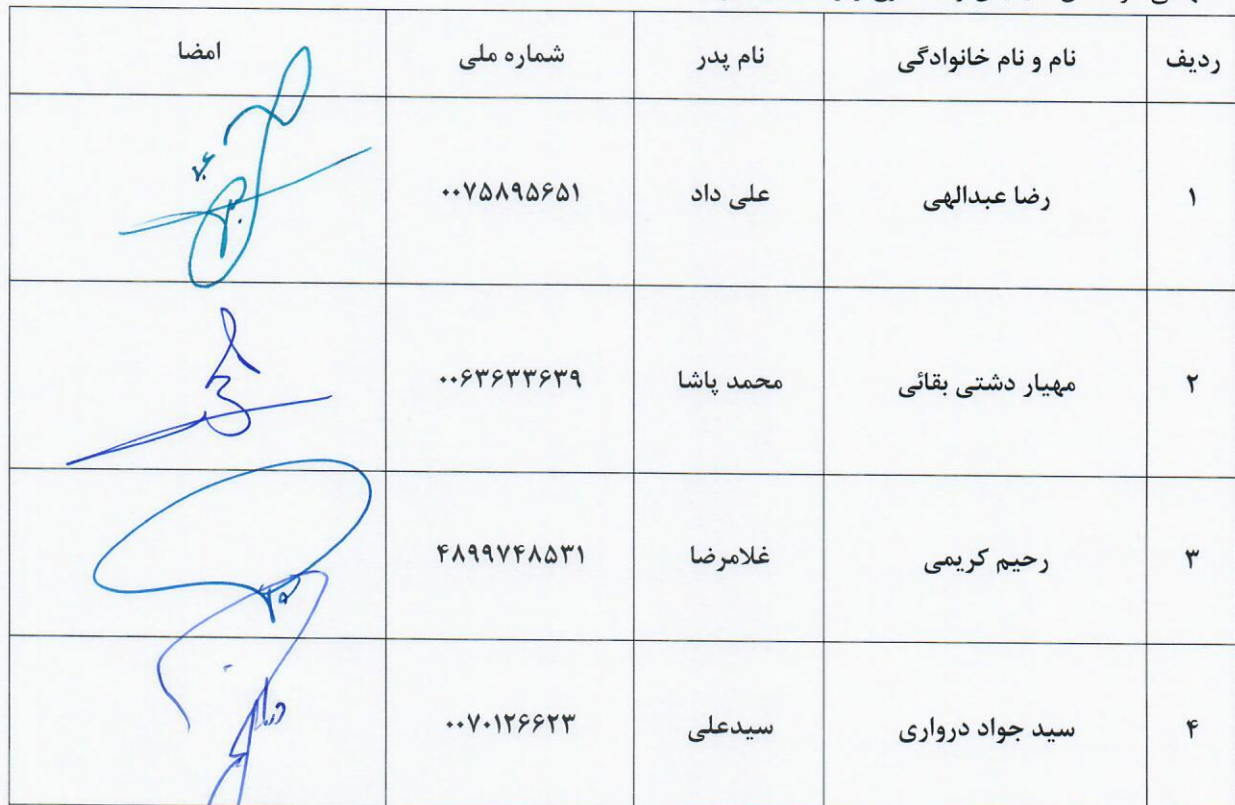 ردیف نام و نام خانوادگی نام پدر شماره ملی امضا
۱ رضا عبدالهی علی داد ۰۰۷۵۸۹۵۶۵۱
۲ مهیار دشتی بقائی محمد پاشا ۰۰۶۳۶۳۳۶۳۹
۳ رحیم کریمی غلامرضا ۴۸۹۹۷۴۸۵۳۱
۴ سید جواد درواری سیدعلی ۰۰۷۰۱۲۶۶۲۳